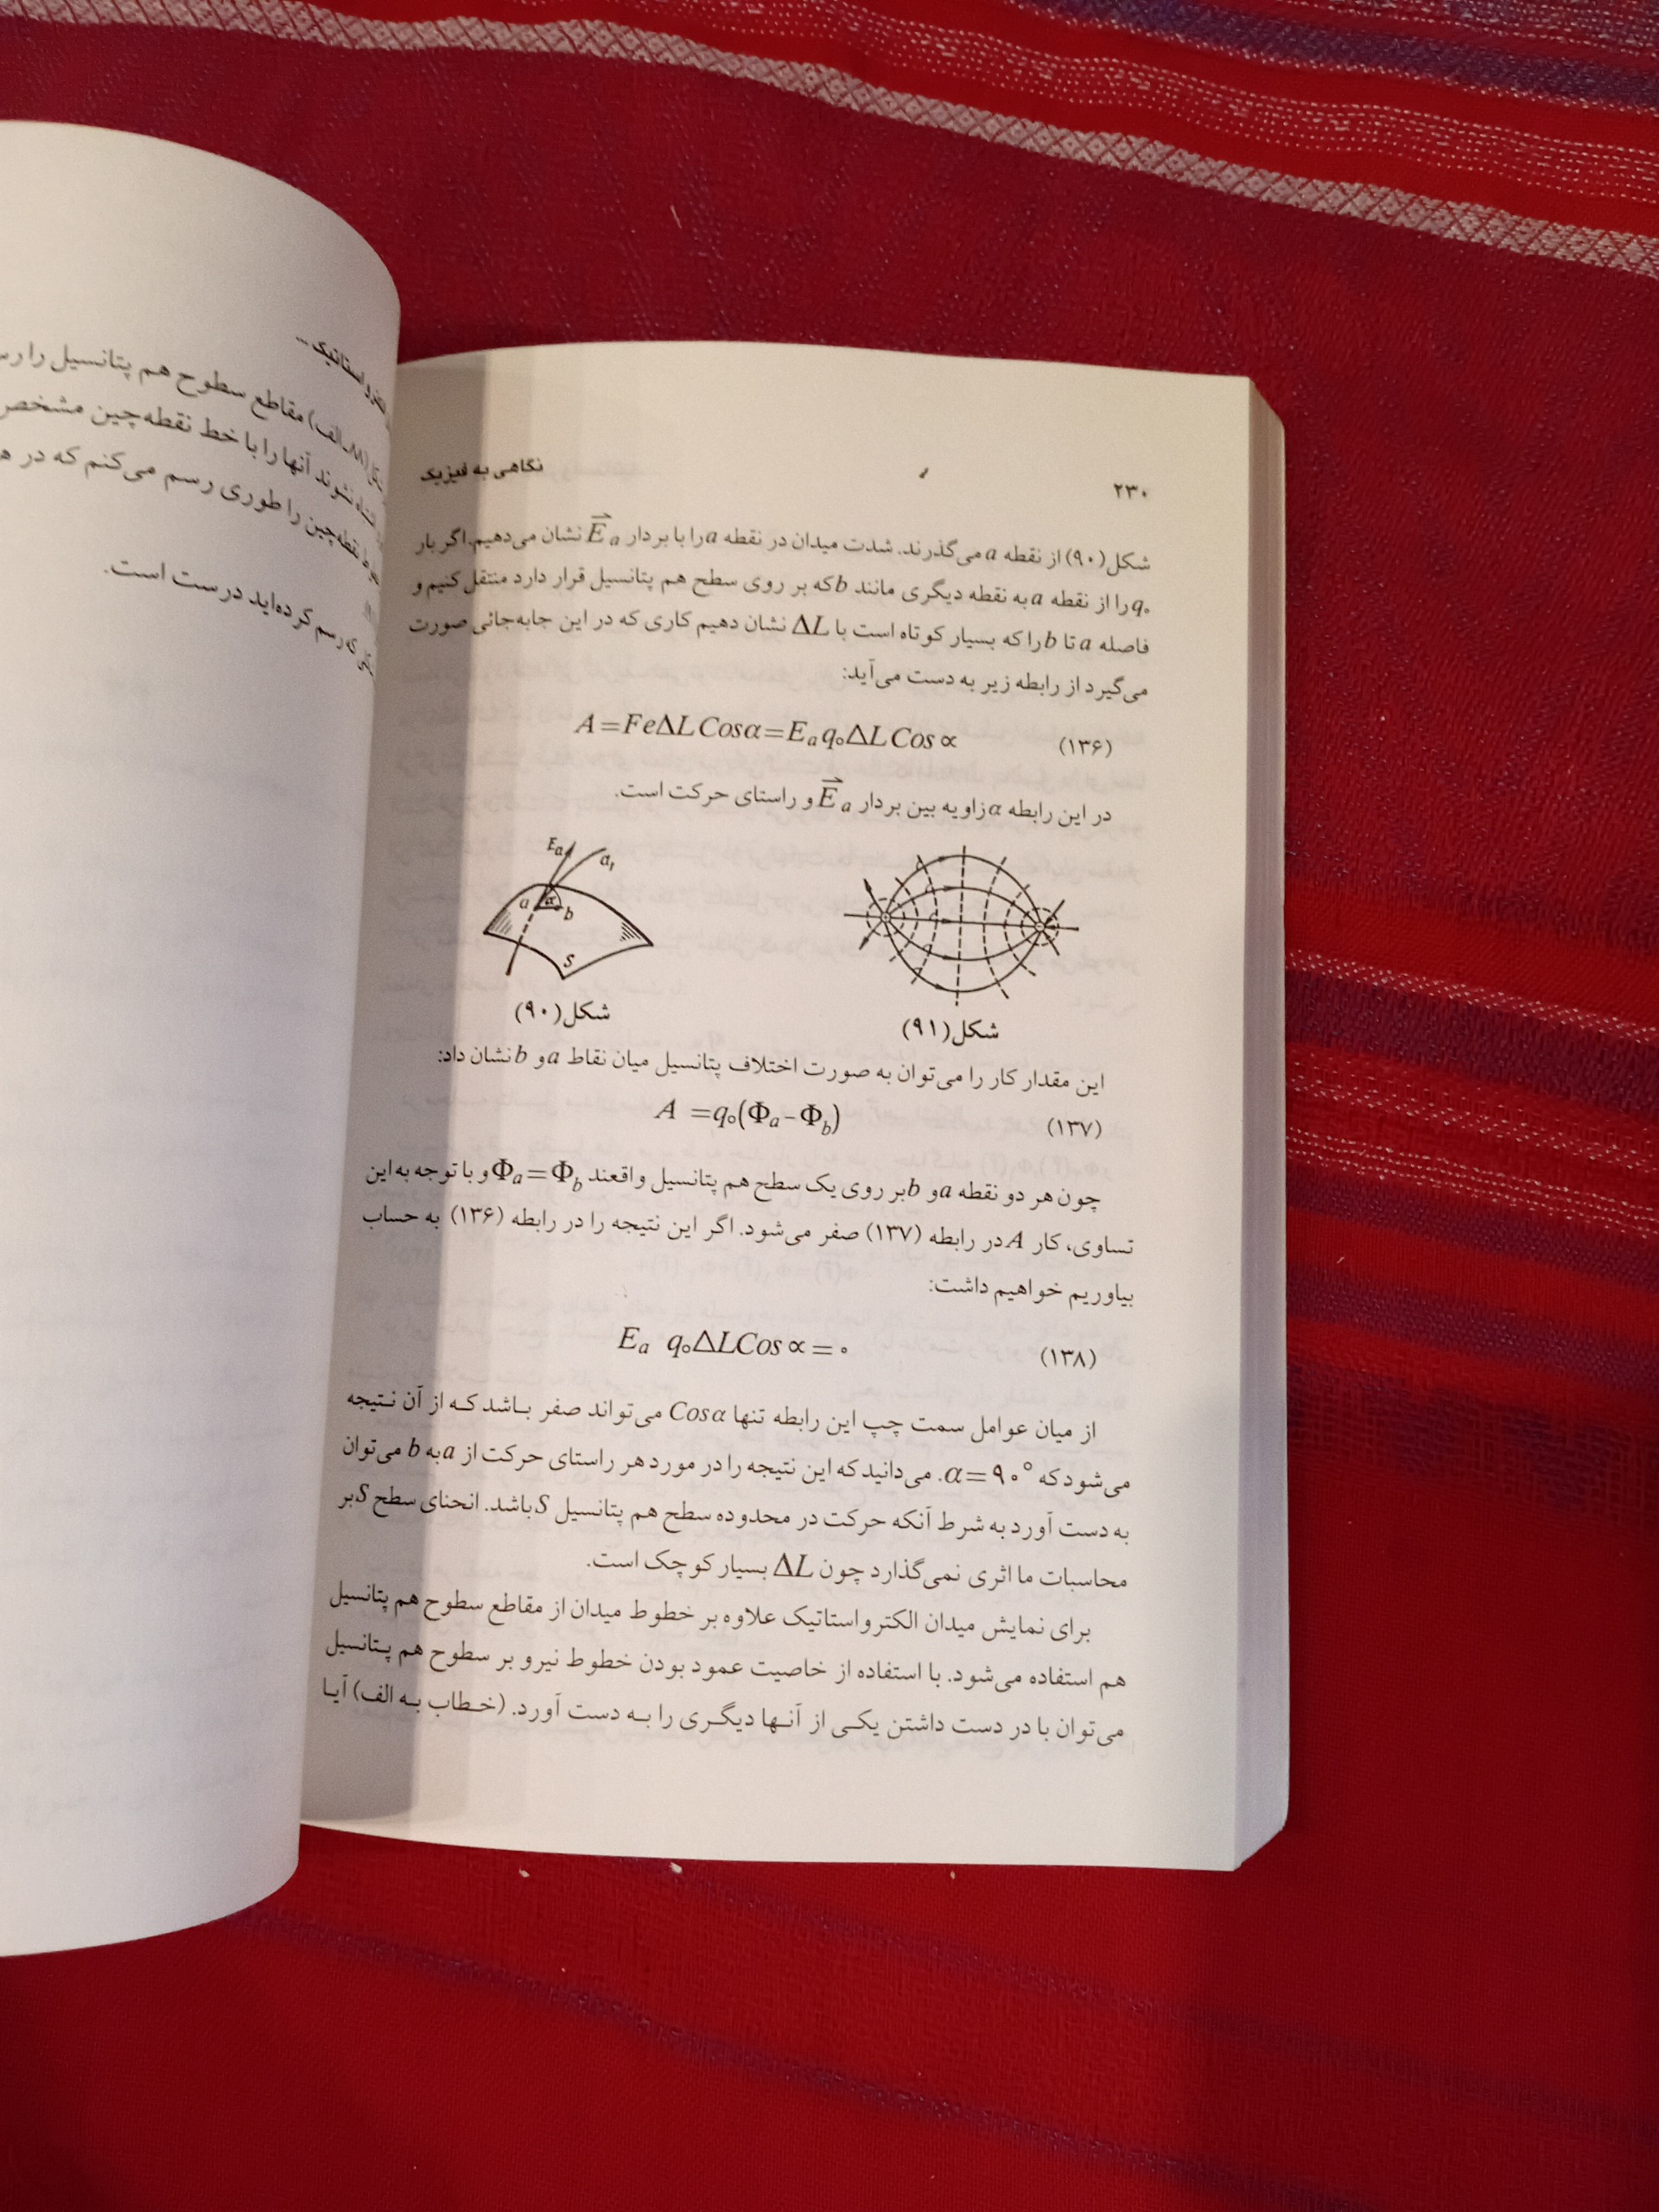 ۲۳۰
نگاهی به فیزیک
شکل(۹۰) از نقطه a می‌گذرند. شدت میدان در نقطه a را با بردار E⃗a نشان می‌دهیم. اگر بار
q₀ را از نقطه a به نقطه دیگری مانند b که بر روی سطح هم پتانسیل قرار دارد منتقل کنیم و
فاصله a تا b را که بسیار کوتاه است با ΔL نشان دهیم کاری که در این جابه‌جائی صورت
می‌گیرد از رابطه زیر به دست می‌آید:
(۱۳۶) A=FeΔLCosα=Eaq₀ΔLCos∝
در این رابطه α زاویه بین بردار E⃗a و راستای حرکت است.
Ea
a₁
a
α
b
S
شکل(۹۰)
شکل(۹۱)
این مقدار کار را می‌توان به صورت اختلاف پتانسیل میان نقاط a و b نشان داد:
(۱۳۷) A =q₀(Φa-Φb)
چون هر دو نقطه a و b بر روی یک سطح هم پتانسیل واقعند Φa=Φb و با توجه به این
تساوی، کار A در رابطه (۱۳۷) صفر می‌شود. اگر این نتیجه را در رابطه (۱۳۶) به حساب
بیاوریم خواهیم داشت:
(۱۳۸) Ea q₀ΔLCos∝=۰
از میان عوامل سمت چپ این رابطه تنها Cosα می‌تواند صفر باشد که از آن نتیجه
می‌شود که α=۹۰°. می‌دانید که این نتیجه را در مورد هر راستای حرکت از a به b می‌توان
به دست آورد به شرط آنکه حرکت در محدوده سطح هم پتانسیل S باشد. انحنای سطح S بر
محاسبات ما اثری نمی‌گذارد چون ΔL بسیار کوچک است.
برای نمایش میدان الکترواستاتیک علاوه بر خطوط میدان از مقاطع سطوح هم پتانسیل
هم استفاده می‌شود. با استفاده از خاصیت عمود بودن خطوط نیرو بر سطوح هم پتانسیل
می‌توان با در دست داشتن یکی از آنها دیگری را به دست آورد. (خطاب به الف) آیا
مقاطع سطوح هم پتانسیل را
نشوند آنها را با خط نقطه‌چین مشخص
نقطه‌چین را طوری رسم می‌کنم که در
که رسم کرده‌اید درست است.